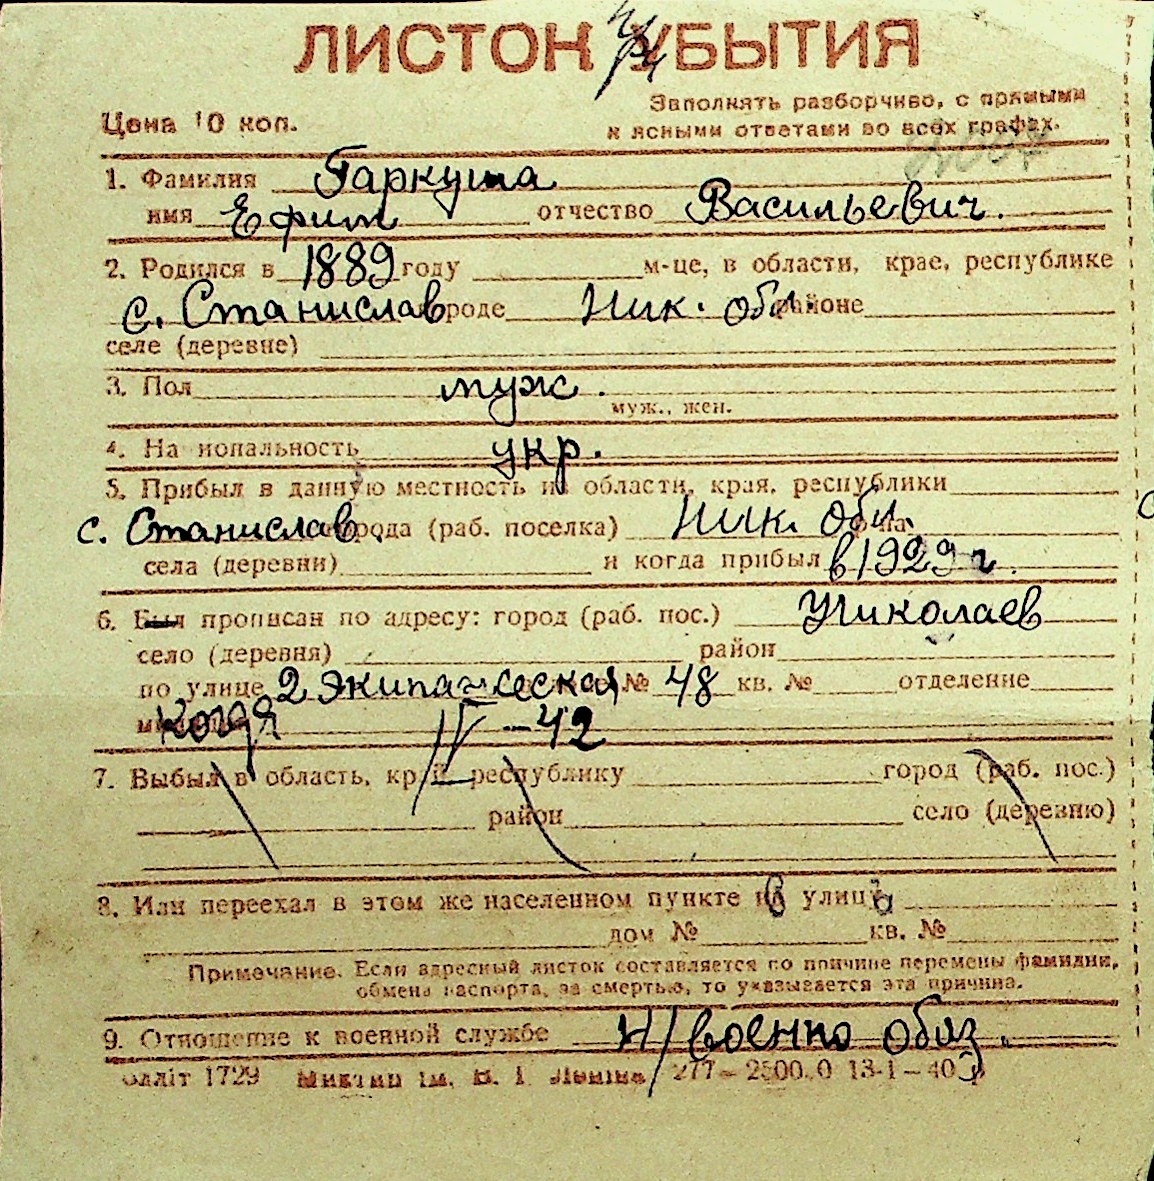 ЛИСТОК УБЫТИЯ
Цена 10 коп.
Заполнять разборчиво, с прямыми
и ясными ответами во всех графах.
1. Фамилия Гаркуша
имя Ефим отчество Васильевич.
2. Родился в 1889 году м-це, в области, крае, республике
с. Станислав городе Ник. обл. районе
селе (деревне)
3. Пол муж.
муж., жен.
4. Национальность укр.
5. Прибыл в данную местность из области, края, республики
с. Станислав. города (раб. поселка) Ник. обл. района
села (деревни) и когда прибыл в 1929 г.
6. Был прописан по адресу: город (раб. пос.) г. Николаев
село (деревня) район
по улице 2 Экипажеская № 48 кв. № отделение
когда IV-42
7. Выбыл в область, край, республику город (раб. пос.)
район село (деревню)
8. Или переехал в этом же населенном пункте на улицу
дом № кв. №
Примечание. Если адресный листок составляется по причине перемены фамилии,
обмена паспорта, за смертью, то указывается эта причина.
9. Отношение к военной службе н/военно обяз.
Облліт 1729 ім. В. І. Леніна 277—25000 13-1—40